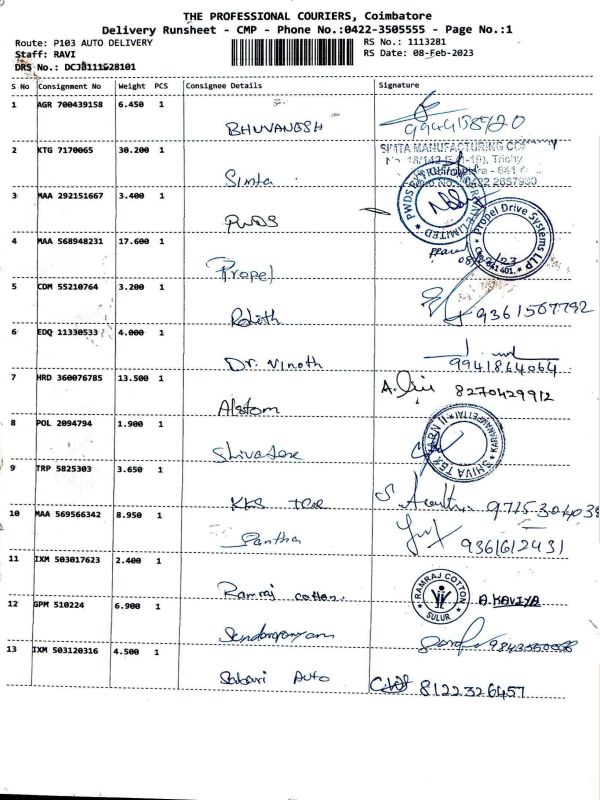 THE PROFESSIONAL COURIERS, Coimbatore
Delivery Runsheet - CMP - Phone No.:0422-3505555 - Page No.:1
Route: P103 AUTO DELIVERY RS No.: 1113281
Staff: RAVI RS Date: 08-Feb-2023
DRS No.: DCJB111528101
S No Consignment No Weight PCS Consignee Details Signature
1 AGR 700439158 6.450 1
BHUVANESH 9944158920
2 KTG 7170065 30.200 1 SIMTA MANUFACTURING
Simta
3 MAA 292151667 3.400 1
PWDS PWDS PRIVATE LIMITED
4 MAA 568948231 17.600 1 Propel Drive Systems LLP
Propel CMB-641 401.
5 CDM 55210764 3.200 1
Rohith 9361567792
6 EDQ 11330533 4.000 1
Dr. Vinoth 9941864064
7 HRD 360076785 13.500 1 8270429912
Alstom
8 POL 2094794 1.900 1 SHIVA TEX KARANAMPETTAI
Shivatex
9 TRP 5825303 3.650 1
KKS
10 MAA 569566342 8.950 1
Santha 9361612431
11 IXM 503017623 2.400 1
Ramraj cotton. RAMRAJ COTTON SULUR A.KAVIYA
12 GPM 510224 6.900 1
13 IXM 503120316 4.500 1
Sabari Auto 8122326457